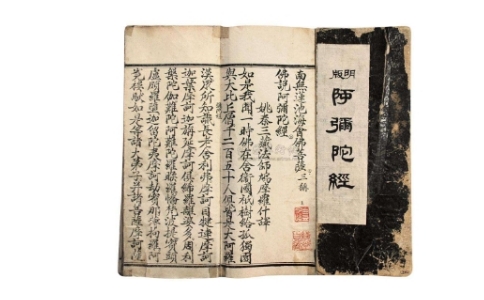 明版
阿彌陀經
南無蓮池海會佛菩薩三稱
佛說阿彌陀經
姚秦三藏法師鳩摩羅什譯
如是我聞一時佛在舍衛國祇樹給孤獨園
與大比丘僧千二百五十人俱皆是大阿羅
漢眾所知識長老舍利弗摩訶目犍連摩訶
迦葉摩訶迦旃延摩訶俱絺羅離婆多周利
槃陀伽難陀阿難陀羅睺羅憍梵波提賓頭
盧頗羅墮迦留陀夷摩訶劫賓那薄拘羅阿
㝹樓馱如是等諸大弟子并諸菩薩摩訶薩